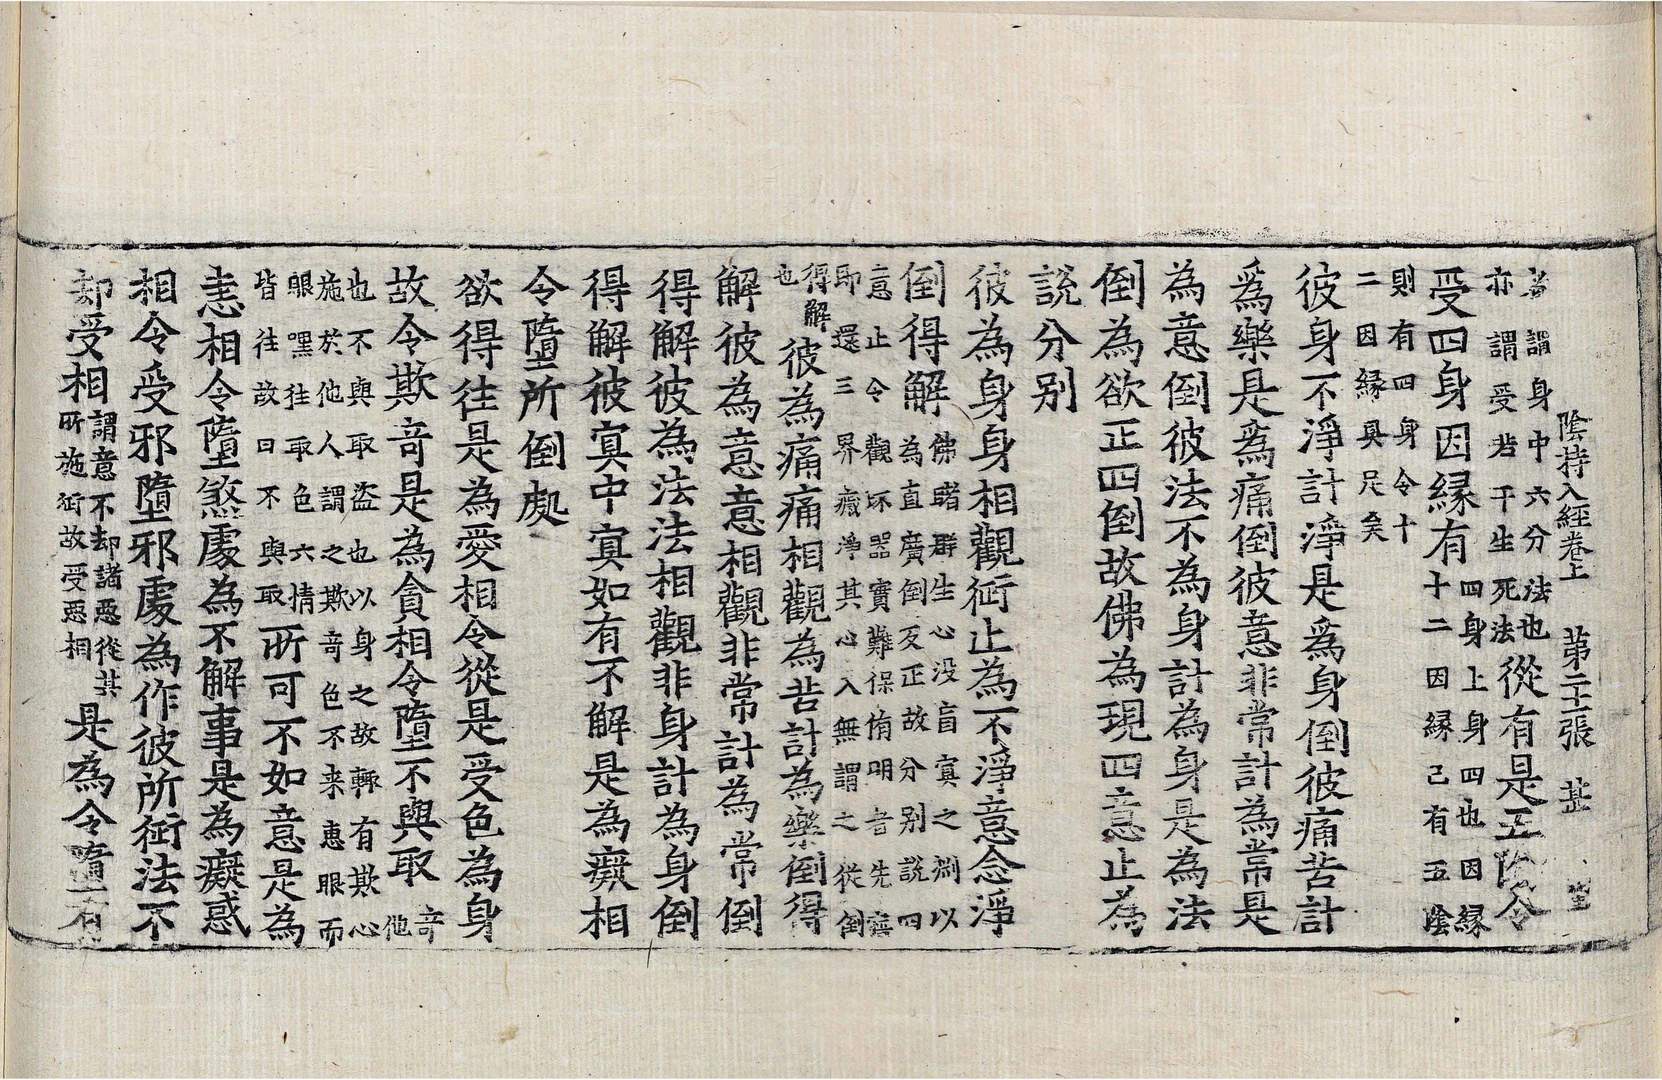 陰持入經卷上 苐二十張 甚
者謂身中六分法也
亦謂受若干生死法
從有是五陰令
受四身因縁有
四身上身四也因縁
十二因縁已有五陰
則有四身令十
二因縁具足矣
彼身不淨計淨是爲身倒彼痛苦計
爲樂是爲痛倒彼意非常計為常是
為意倒彼法不為身計為身是為法
倒為欲正四倒故佛為現四意止為
說分别
彼為身身相觀行止為不淨意念淨
倒得解
佛睹群生心没盲冥之渊以
為直廣倒反正故分别説四
意止令觀坏器實難保脩明者先齊
耶還三界藏淨其心入無謂之從倒
得解
也
彼為痛痛相觀為苦計為樂倒得
解彼為意意相觀非常計為常倒
得解彼為法法相觀非身計為身倒
得解彼冥中冥如有不解是為癡相
令墮所倒處
欲得往是為愛相令從是受色為身
故令欺奇是為貪相令墮不與取
奇
他
也不與取盗也以身之故輙有欺心
施於他人謂之欺奇色不来惠眼而
眼嘿往取色六情
皆往故曰不與取
所可不如意是為
恚相令墮煞處為不解事是為癡惑
相令受邪墮邪處為作彼所行法不
却受相
謂意不却諸惡從其
所施行故受惡相
是為令墮有